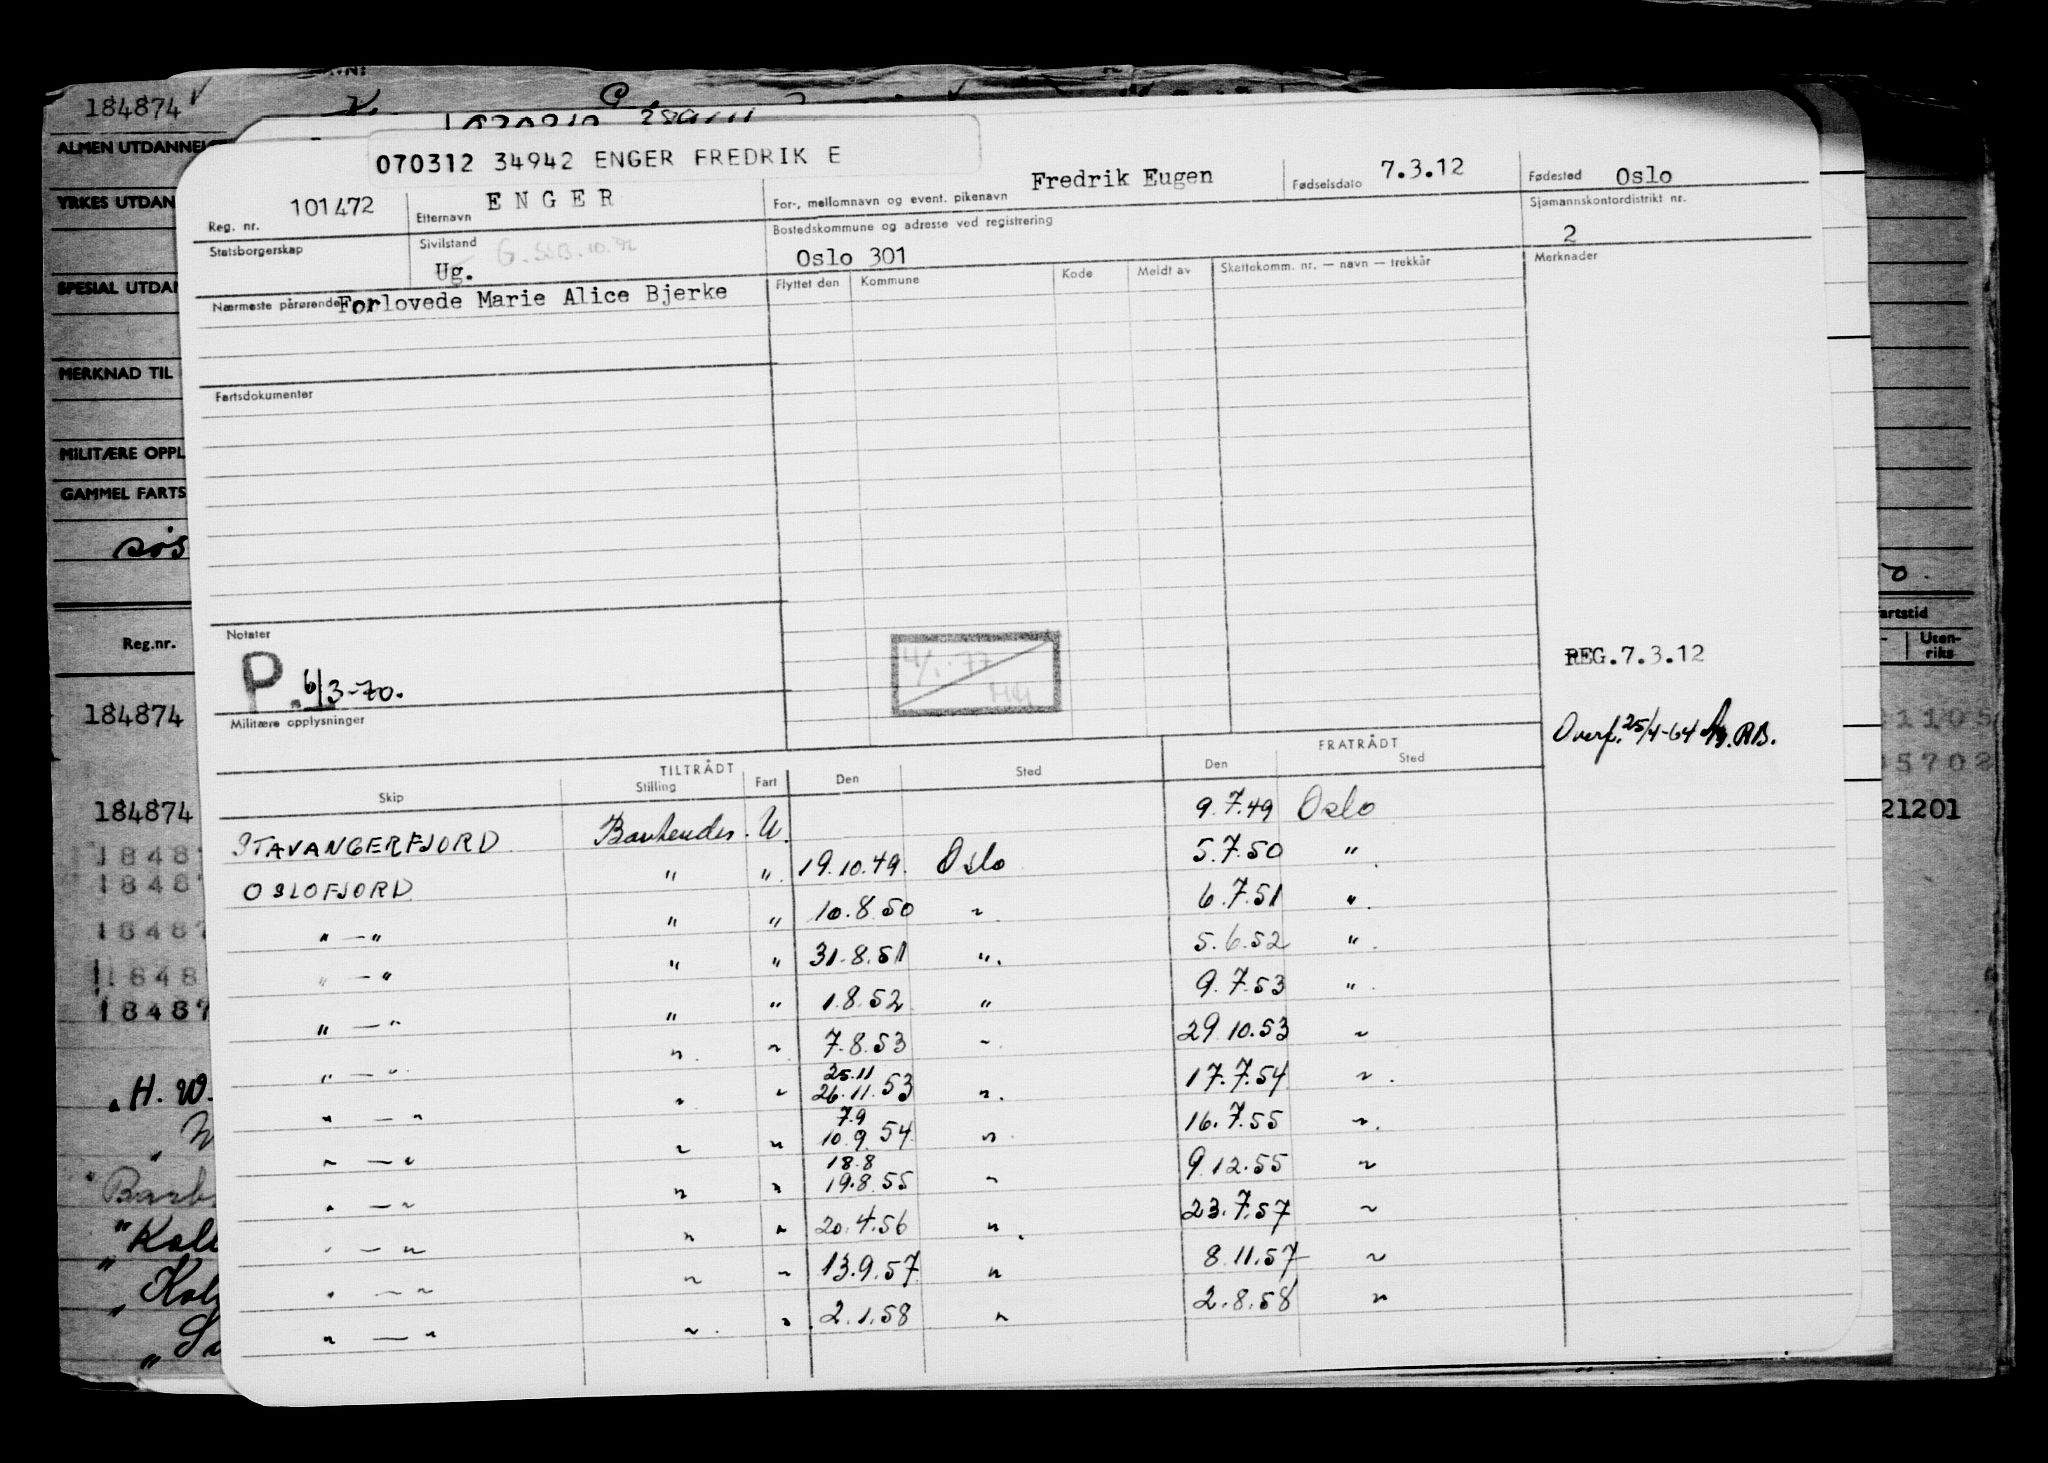 184874
070312 34942 ENGER FREDRIK E
Reg. nr. 101472
Etternavn ENGER
For-, mellomnavn og event. pikenavn Fredrik Eugen
Fødselsdato 7.3.12
Fødested Oslo
Statsborgerskap
Sivilstand Ug.
Bostedskommune og adresse ved registrering Oslo 301
Sjømannskontordistrikt nr. 2
Nærmeste pårørende Forlovede Marie Alice Bjerke
Flyttet den Kommune Kode Meldt av Skattekomm. nr. — navn — trekkår
Merknader
Fartsdokumenter
Notater
P. 6/3-70.
REG.7.3.12
Militære opplysninger
Overf. 25/4-64 RB.
TILTRÅDT FRATRÅDT
Skip Stilling Fart Den Sted Den Sted
STAVANGERFJORD U. 9.7.49 Oslo
OSLOFJORD " " 19.10.49. Oslo 5.7.50 "
" — " " " 10.8.50 " 6.7.51 "
" — " " " 31.8.51 " 5.6.52 "
" — " " " 1.8.52 " 9.7.53 "
" — " " " 7.8.53 " 29.10.53 "
25.11
" — " " " 26.11.53 " 17.7.54 "
7.9
" — " " " 10.9.54 " 16.7.55 "
18.8
" — " " " 19.8.55 " 9.12.55 "
" — " " " 20.4.56 " 23.7.57 "
" — " " " 13.9.57 " 8.11.57 "
" — " " " 2.1.58 " 2.8.58 "
ALMEN UTDANNELSE
YRKES UTDAN
SPESIAL UTDAN
MERKNAD TIL
MILITÆRE OPPL
GAMMEL FARTS
søs
Reg.nr.
184874
184874
18487
1848
18487
1848
18487
H. W.
artstid
Uten-
riks
5702
21201